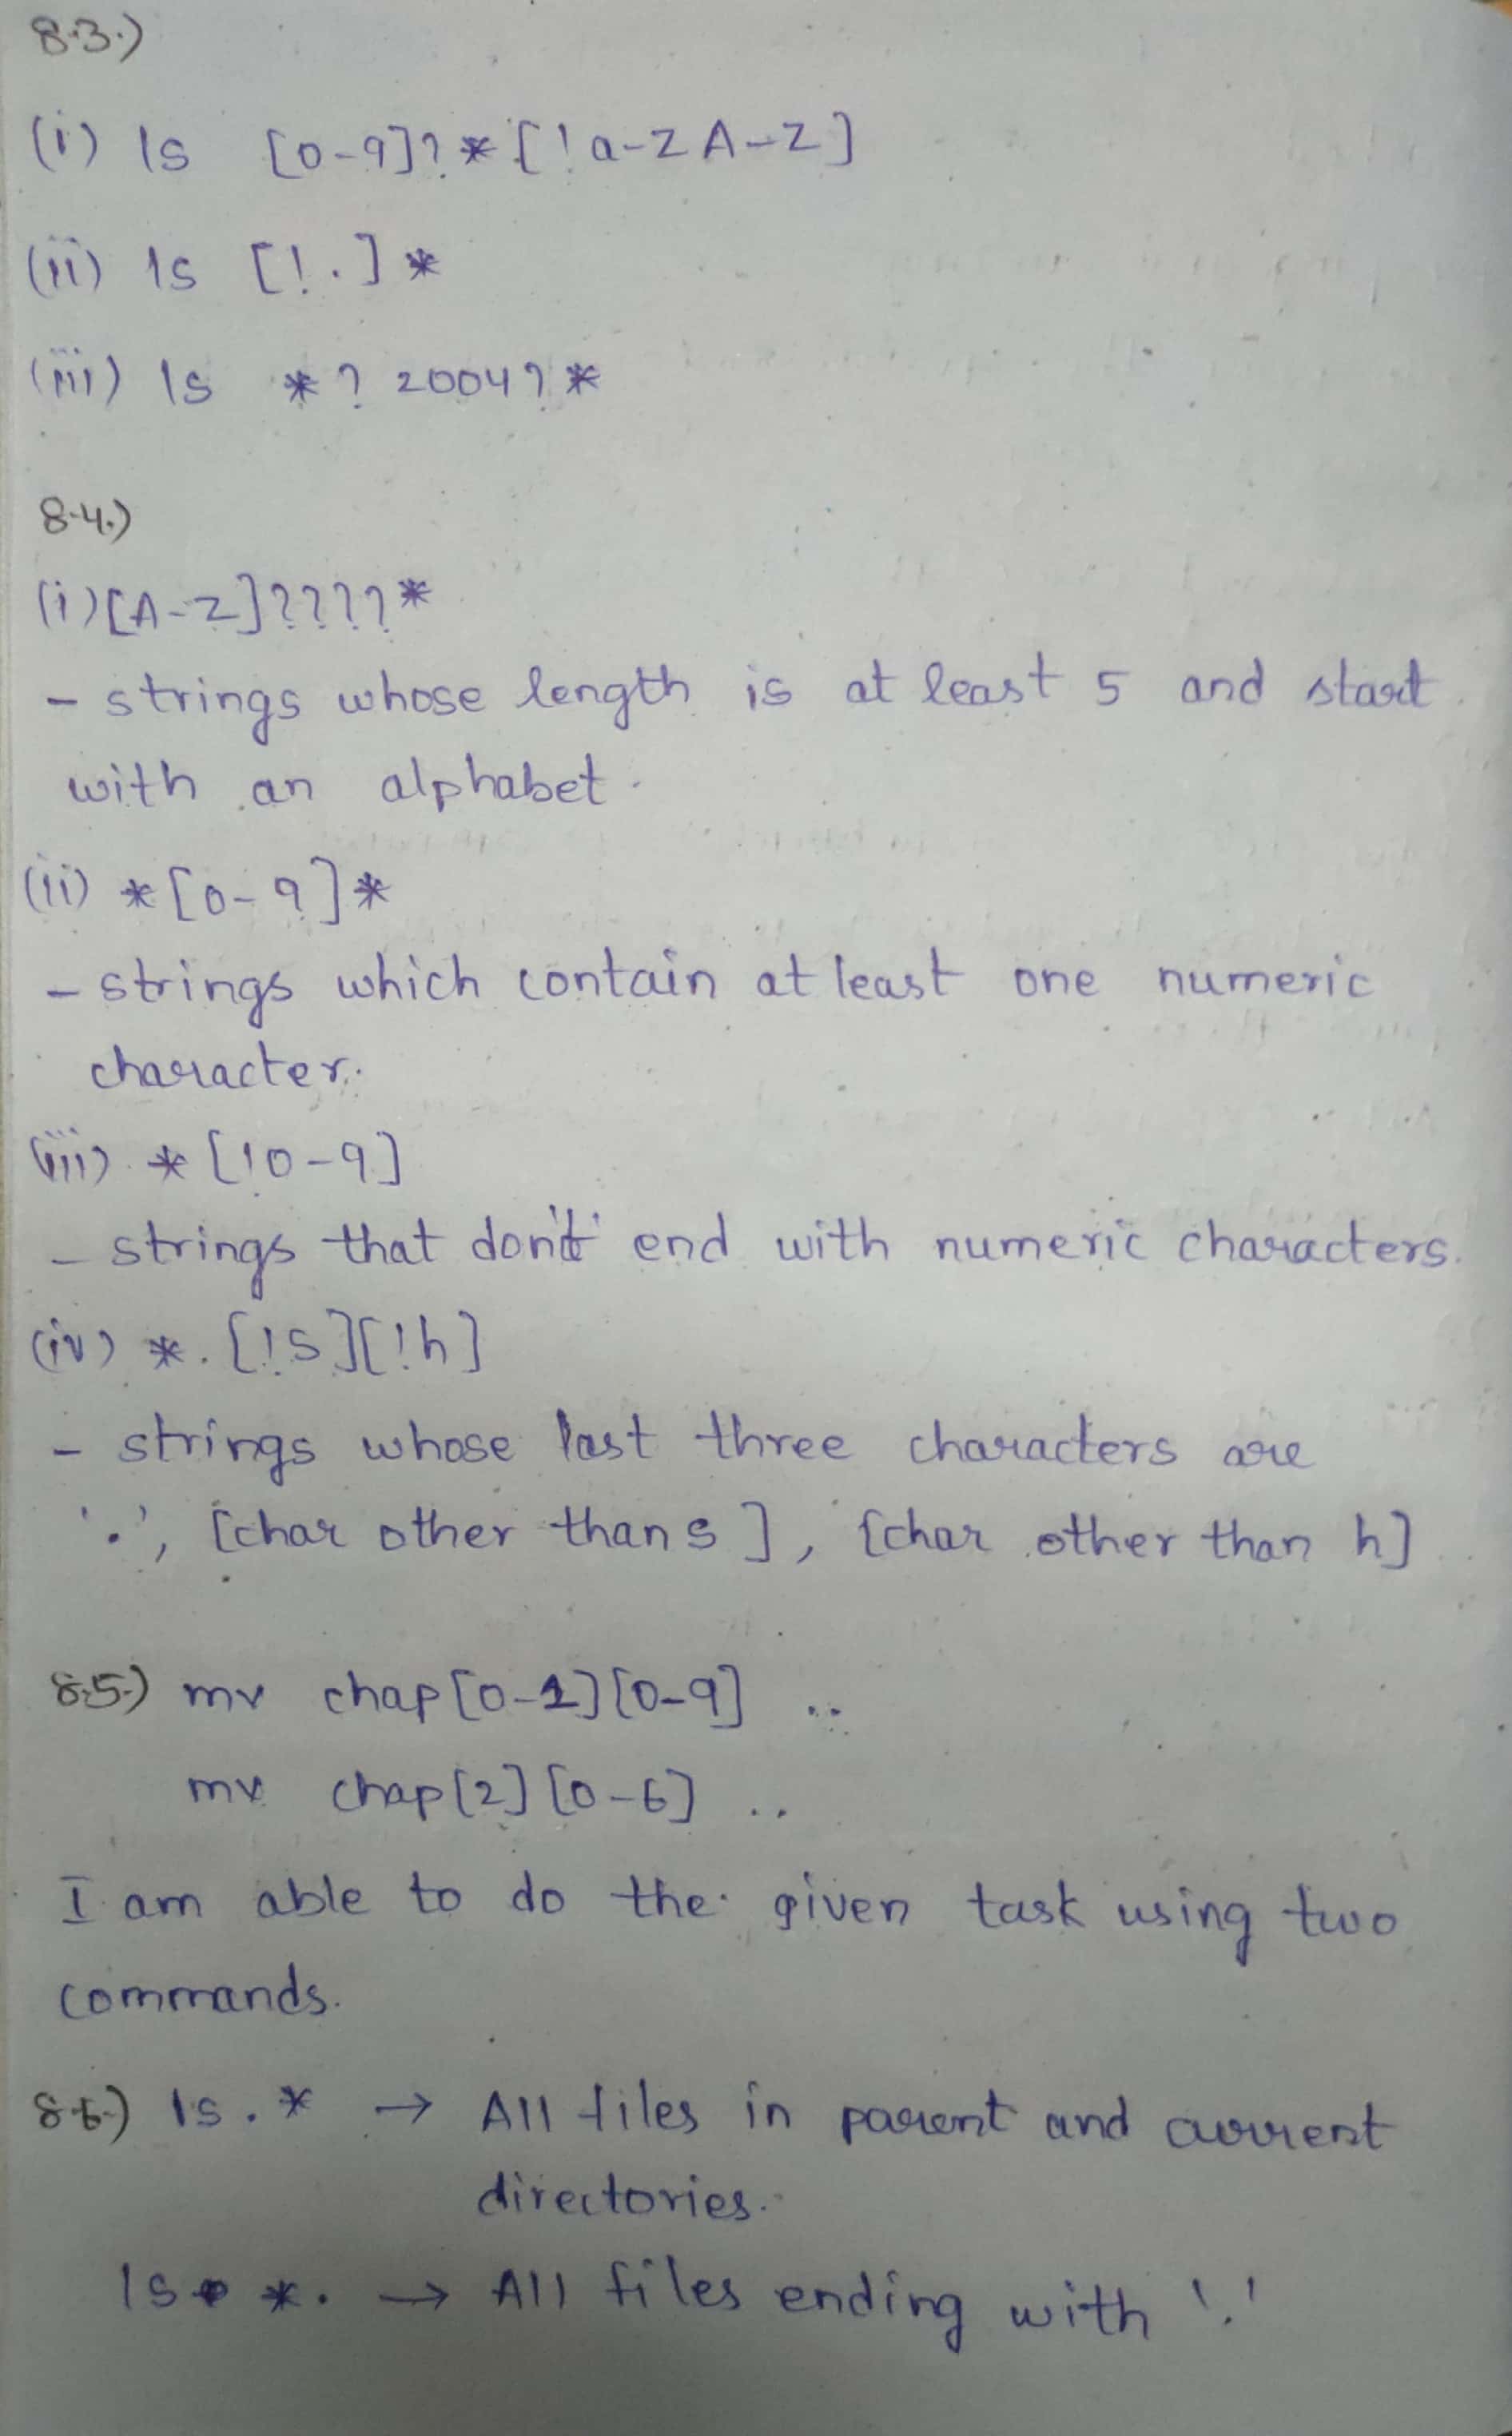 8.3.)
(i) ls [0-9]?*[!a-zA-Z]
(ii) ls [!.]*
(iii) ls *?2004?*
8.4.)
(i) [A-Z]????*
- strings whose length is at least 5 and start
with an alphabet.
(ii) *[0-9]*
- strings which contain at least one numeric
character.
(iii) *[!0-9]
- strings that don't end with numeric characters.
(iv) *.[!s][!h]
- strings whose last three characters are
'.', [char other than s], [char other than h]
8.5.) mv chap[0-1][0-9] ..
mv chap[2][0-6] ..
I am able to do the given task using two
commands.
8.6.) ls .* → All files in parent and current
directories.
ls *. → All files ending with '.'